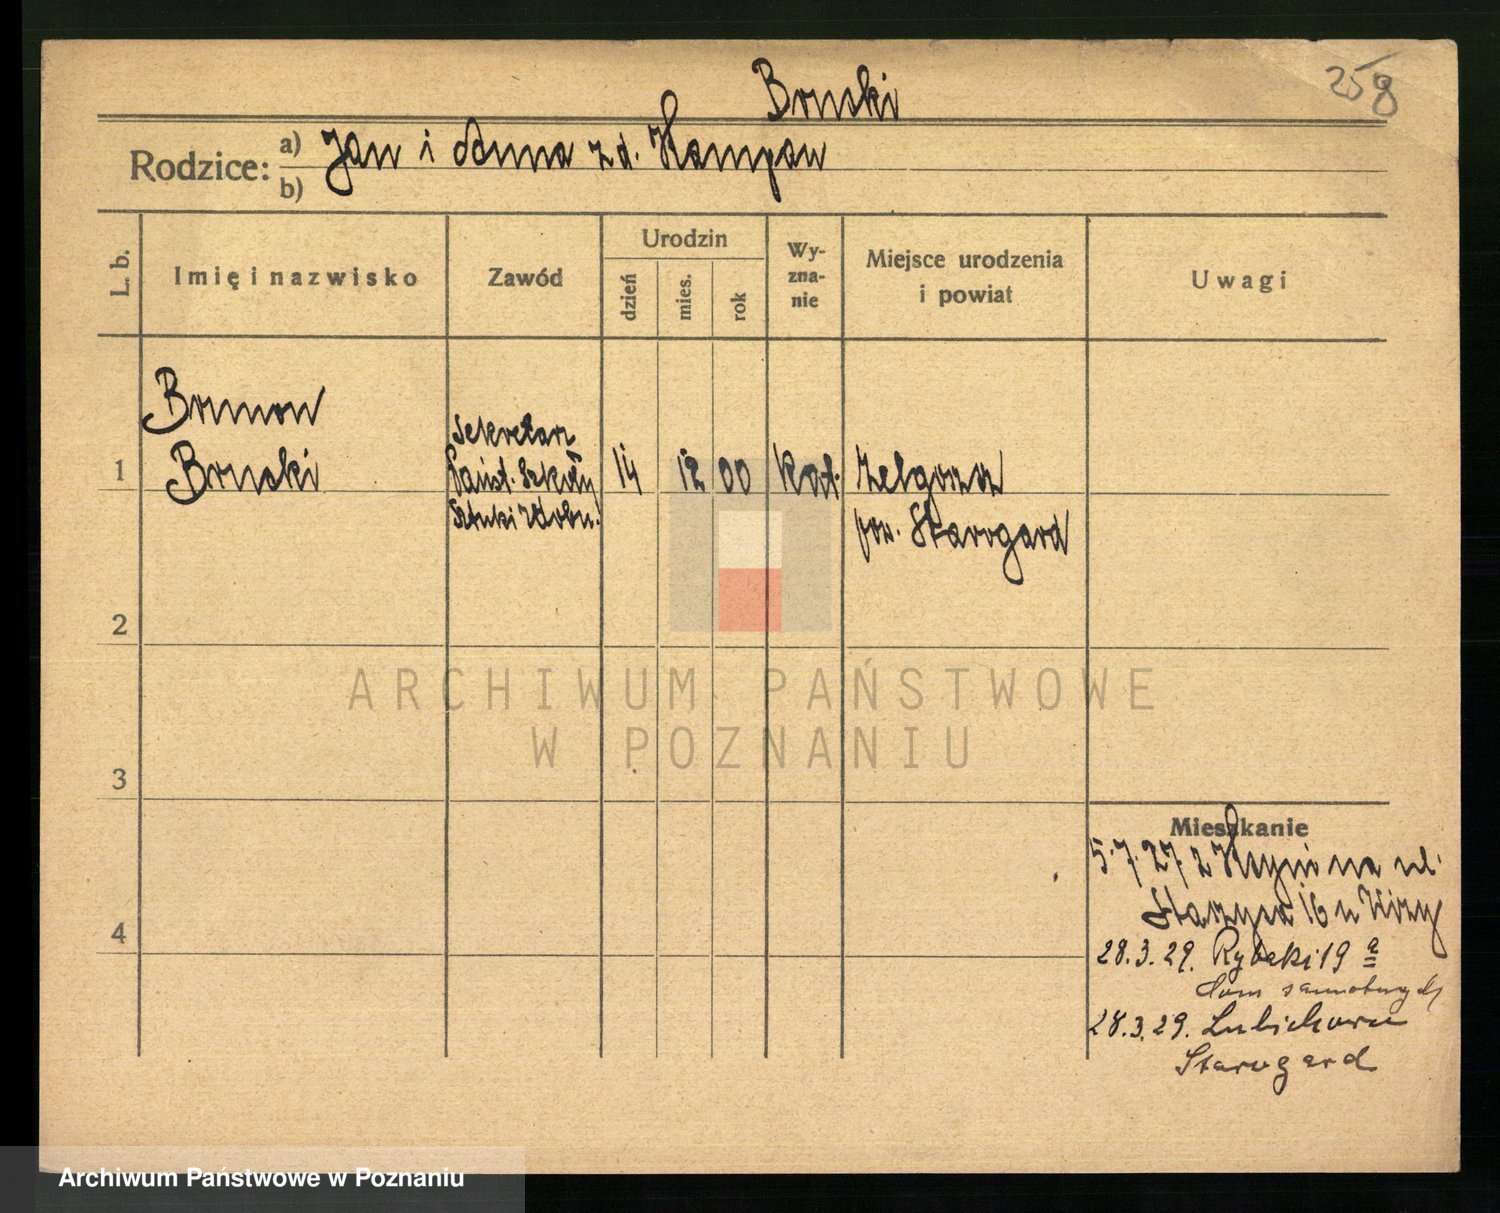 258
Bruski
Rodzice: a) Jan i Anna z d. Kampau
b)
L. b.
Imię i nazwisko
Zawód
Urodzin
dzień
mies.
rok
Wy-
zna-
nie
Miejsce urodzenia
i powiat
Uwagi
Brunon
Bruski
sekretarz
Państ. Szkoły
Sztuki Zdobn.
1
14 12 00 kat. Zelgoszcz
pow. Starogard
2
ARCHIWUM PAŃSTWOWE
W POZNANIU
3
Mieszkanie
5.7.27 z Kcyni na ul.
16 u
4
28.3.29. Rybaki 19 a
dom samotnych
28.3.29. Lubichowo
Starogard
Archiwum Państwowe w Poznaniu